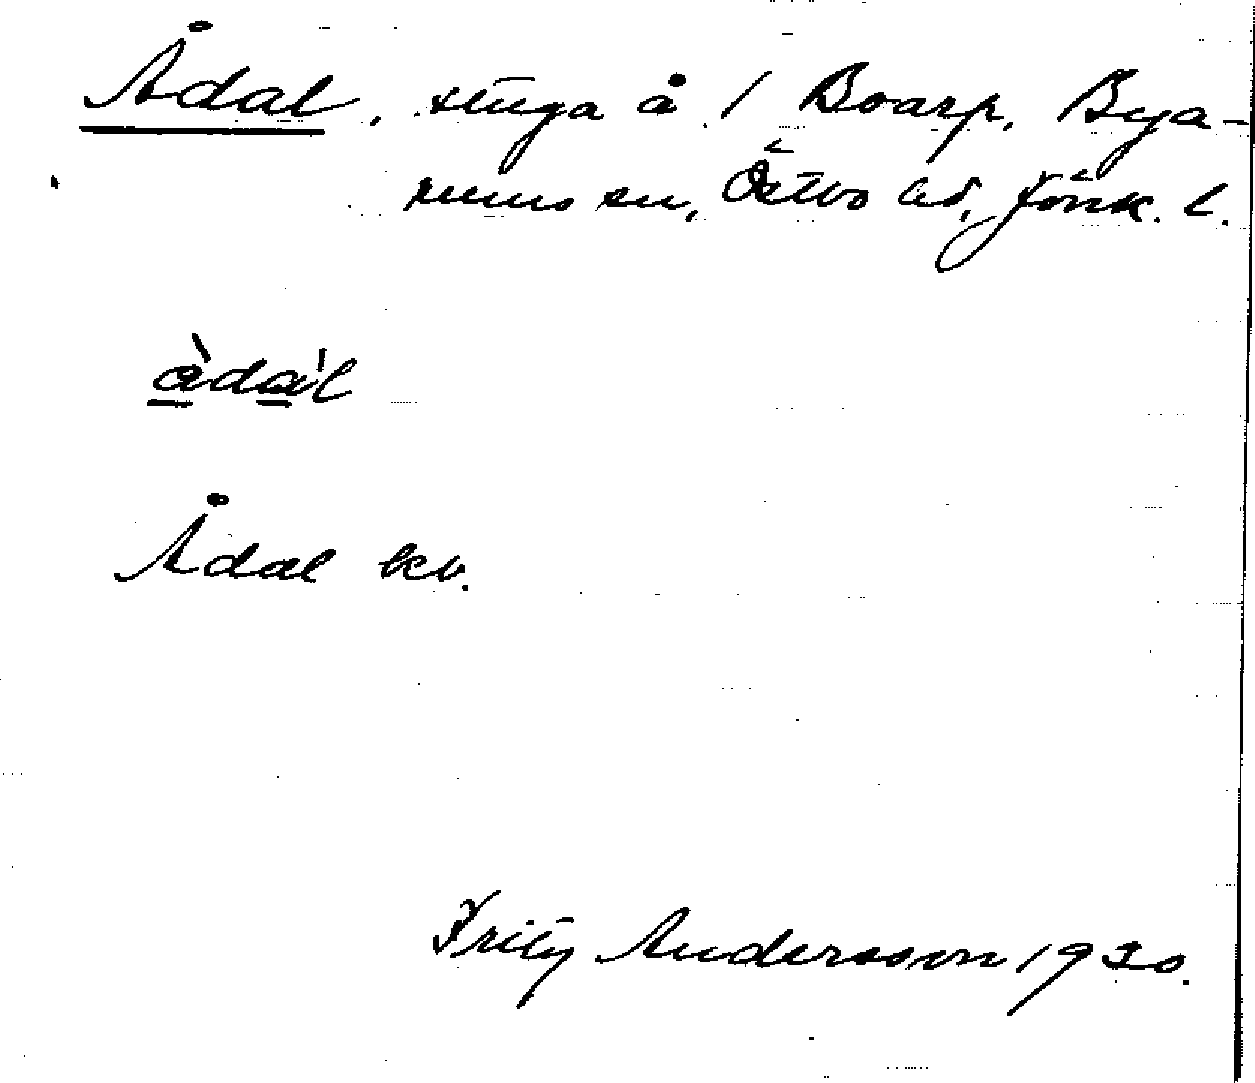 Ådal, stuga å 1 Boarp, Bya-
rums sn, Östbo hd, Jönk. l.
àda'l
Ådal kv.
Fritz Andersson 1930.